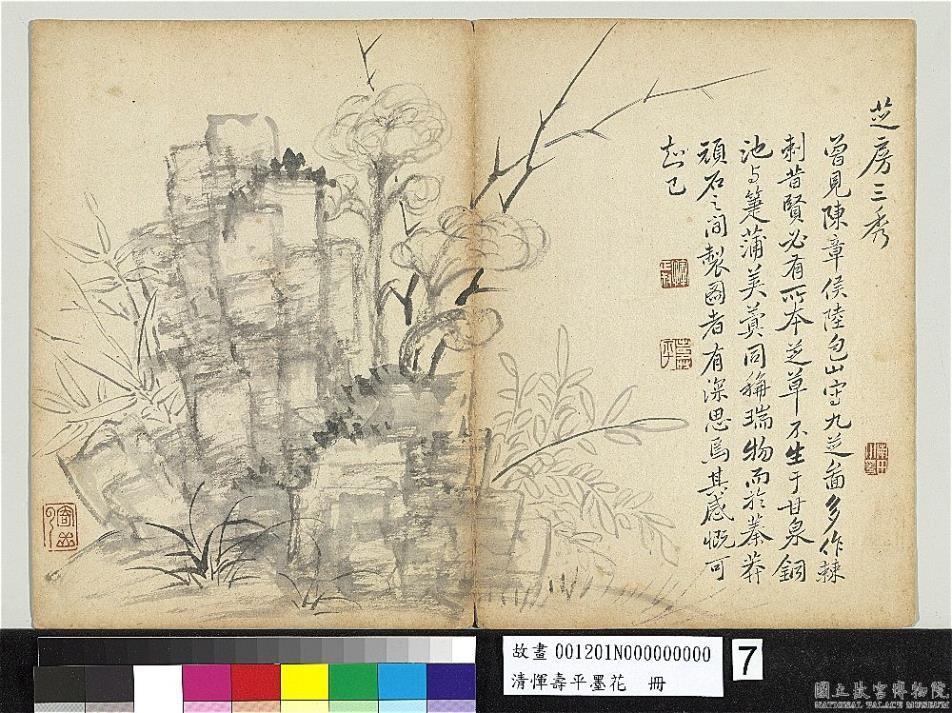 芝房三秀
曾見陳章侯陸包山寫九芝圖多作棘
刺昔賢必有所本芝草不生于甘泉銅
池与箑蒲美蓂同稱瑞物而於蓁莽
頑石之間製圖者有深思焉其感慨可
起已
故畫 001201N000000000
清惲壽平墨花 冊
7
國立故宮博物院
NATIONAL PALACE MUSEUM